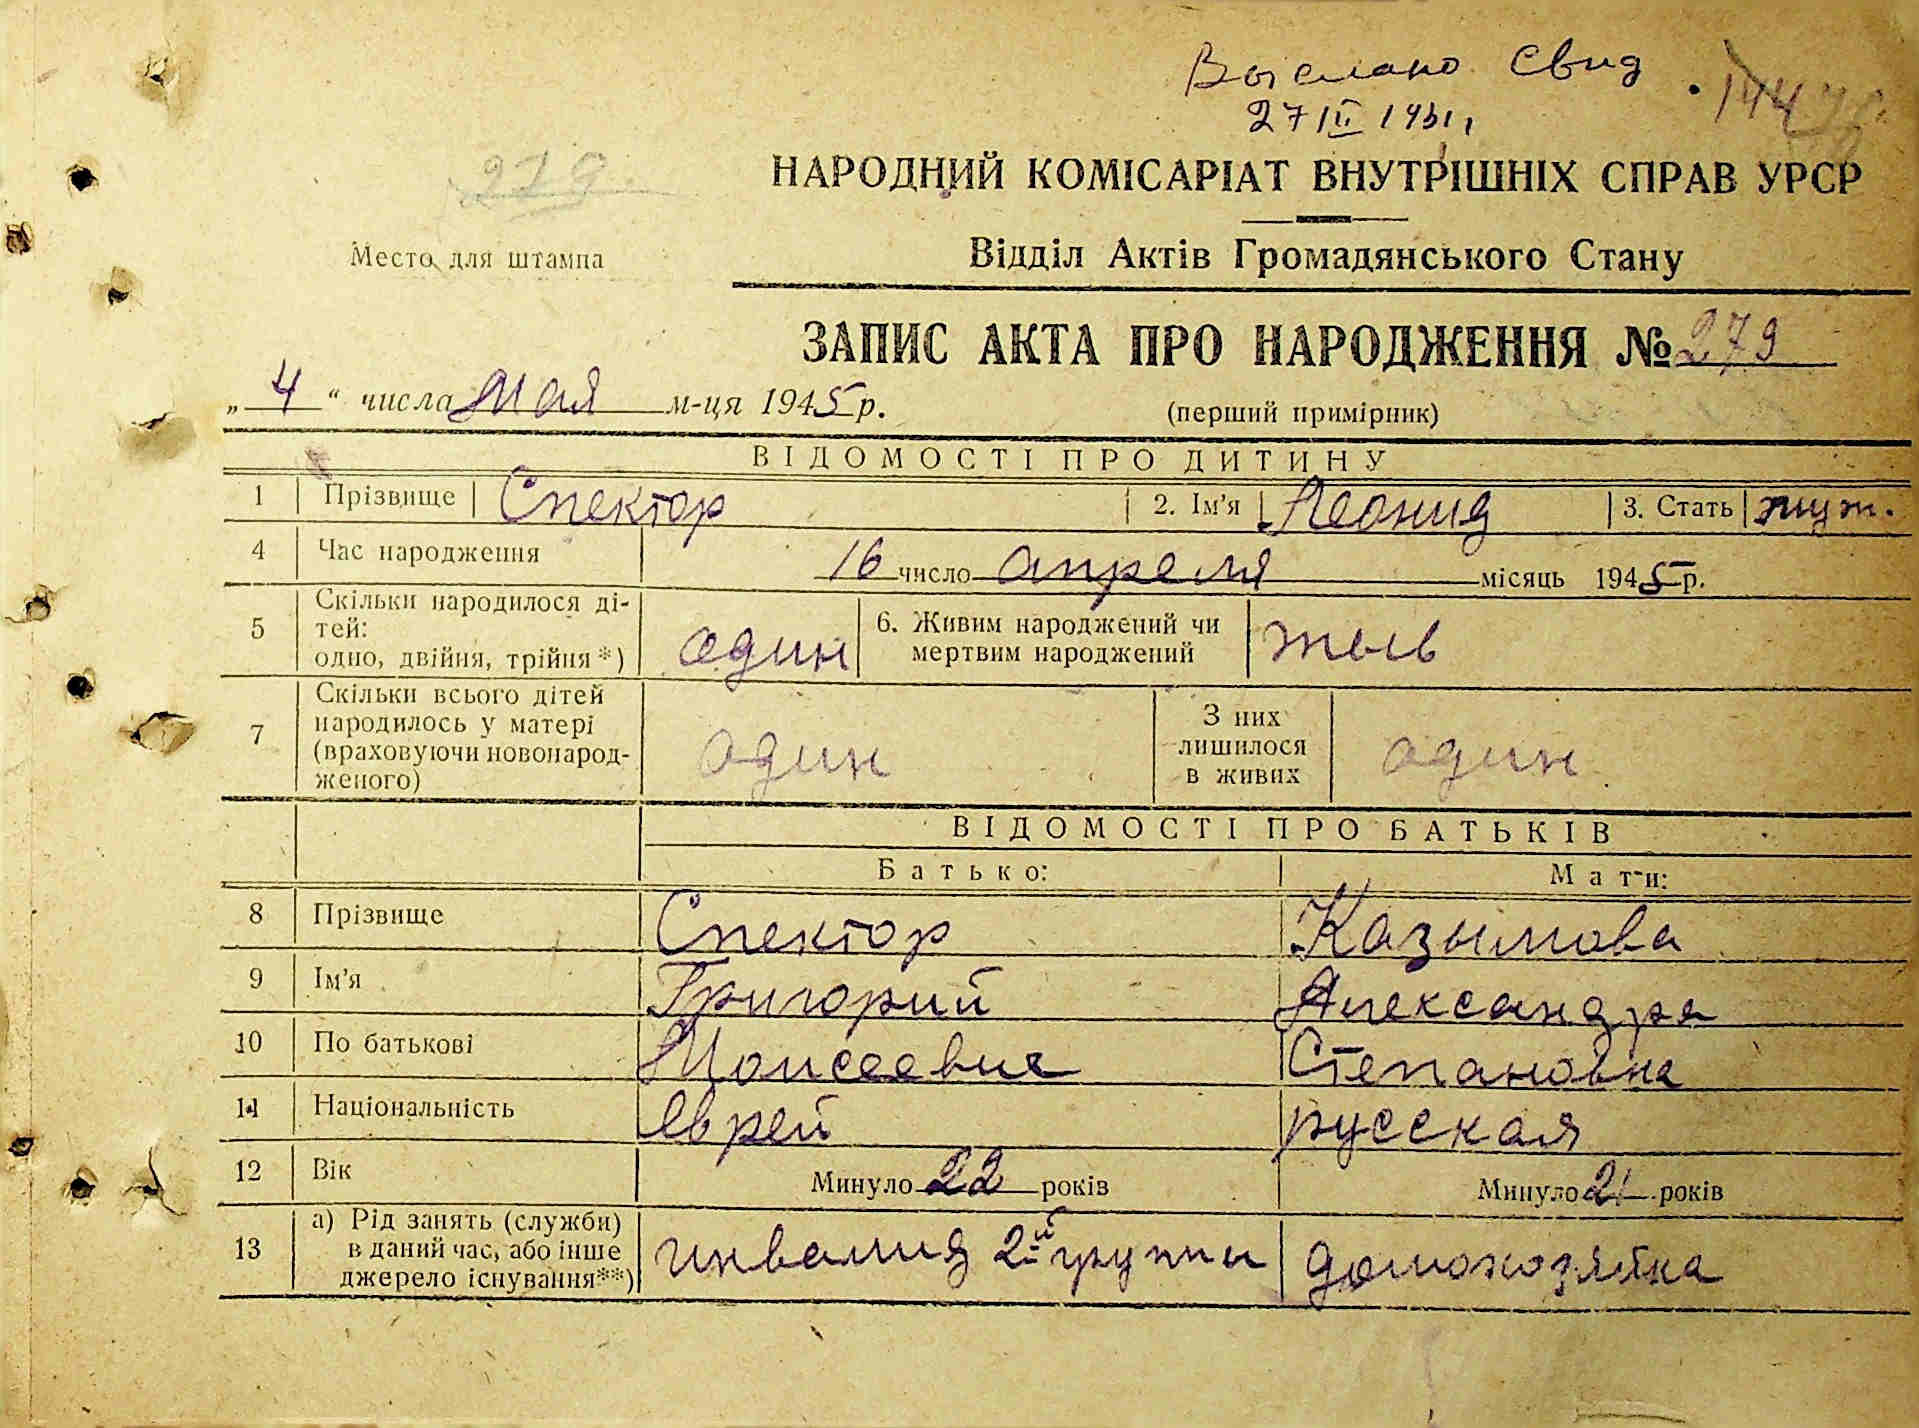 Выслано свид
27/II 1951г
279
НАРОДНИЙ КОМІСАРІАТ ВНУТРІШНІХ СПРАВ УРСР
Место для штампа
Відділ Актів Громадянського Стану
ЗАПИС АКТА ПРО НАРОДЖЕННЯ № 279
„ 4 “ числа Мая м-ця 1945 р.
(перший примірник)
ВІДОМОСТІ ПРО ДИТИНУ
1 Прізвище Спектор 2. Ім'я Леонид 3. Стать муж.
4 Час народження 16 число апреля місяць 1945 р.
5 Скільки народилося ді-
тей:
одно, двійня, трійня *) один
6. Живим народжений чи
мертвим народжений жыв
7 Скільки всього дітей
народилось у матері
(враховуючи новонарод-
женого) один
З них
лишилося
в живих один
ВІДОМОСТІ ПРО БАТЬКІВ
Батько: Мати:
8 Прізвище Спектор Казымова
9 Ім'я Григорий Александра
10 По батькові Моисеевич Степановна
11 Національність еврей русская
12 Вік Минуло 22 років Минуло 21 років
13 а) Рід занять (служби)
в даний час, або інше
джерело існування**) инвалид 2й группы домохозяйка